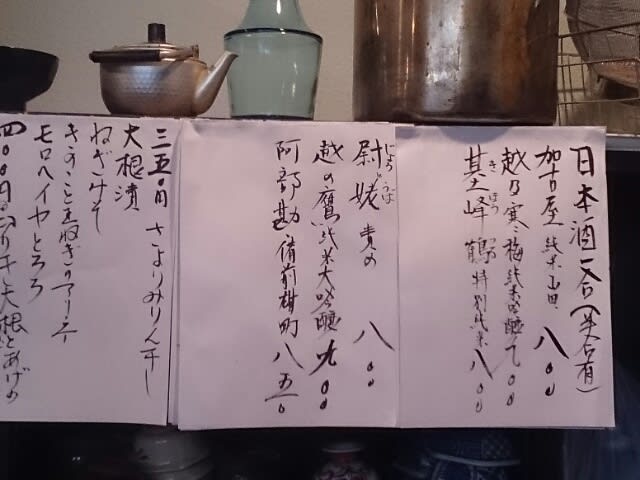 日本酒一合(半合有)
加古屋 純米山田 八〇〇
越乃寒梅 純米吟醸 九〇〇
基峰鶴 特別純米 八〇〇
き ほう つる
尉と姥 貴の 八〇〇
じょう うば
越の鷹 純米大吟醸 九〇〇
阿部勘 備前雄町 八五〇
三五〇円 さよりみりん干し
大根漬
ねぎみそ
きのこと玉ねぎのマリネ
モロヘイヤとろろ
四〇〇円 切り干大根とあげの